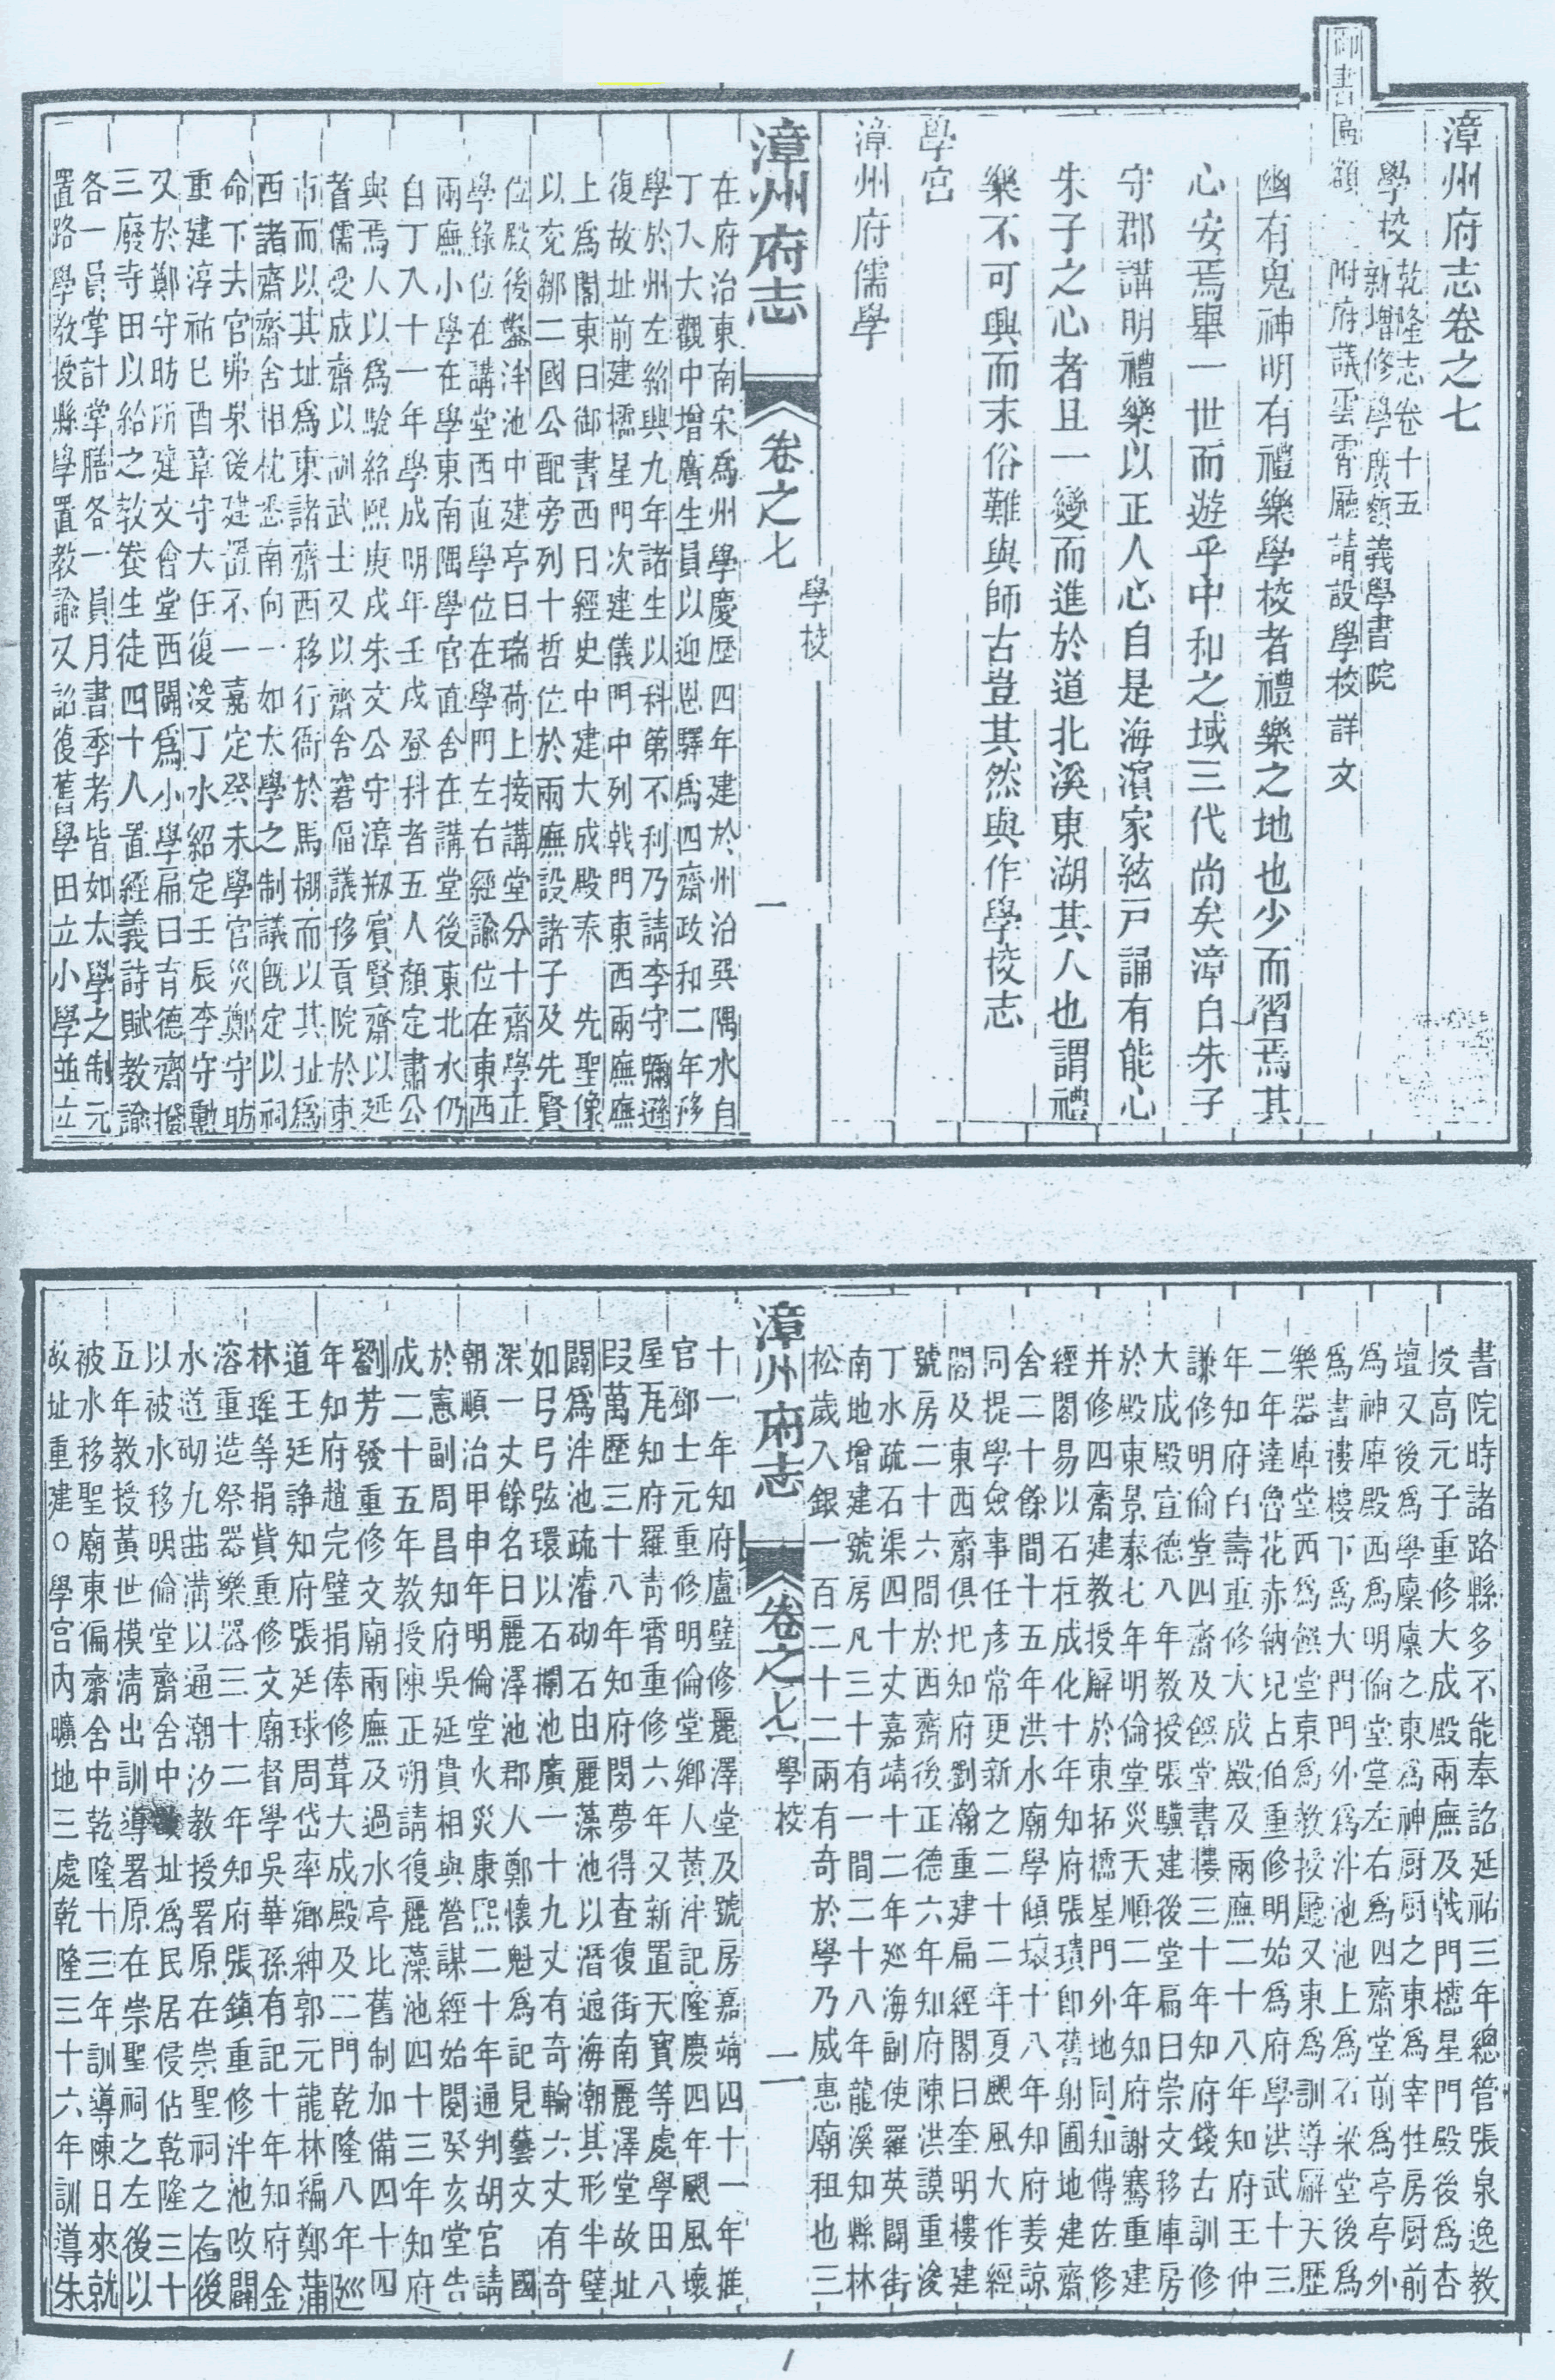 漳州府志卷之七
學校
乾隆志卷十五
新增修學廣額義學書院
御書匾額
附府議雲霄廳請設學校詳文
幽有鬼神明有禮樂學校者禮樂之地也少而習焉其
心安焉舉一世而遊乎中和之域三代尚矣漳自朱子
守郡講明禮樂以正人心自是海濱家絃戸誦有能心
朱子之心者且一變而進於道北溪東湖其人也謂禮
樂不可興而末俗難與師古豈其然與作學校志
學宮
漳州府儒學
漳州府志
卷之七
學校
一
在府治東南宋爲州學慶歷四年建於州治巽隅水自
丁入大觀中增廣生員以迎恩驛爲四齋政和二年移
學於州左紹興九年諸生以科第不利乃請李守彌遜
復故址前建櫺星門次建儀門中列戟門東西兩廡廡
上爲閣東曰御書西曰經史中建大成殿奉 先聖像
以兗鄒二國公配旁列十哲位於兩廡設諸子及先賢
位殿後鑿泮池中建亭曰瑞荷上接講堂分十齋學正
學錄位在講堂西直學位在學門左右經諭位在東西
兩廡小學在學東南隅學官直舍在講堂後東北水仍
自丁入十一年學成明年壬戌登科者五人顏定肅公
與焉人以爲驗紹熙庚戌朱文公守漳剏賓賢齋以延
耆儒受成齋以訓武士又以齋舍窘偪議移貢院於東
市而以其址爲東諸齋西移行衙於馬棚而以其址爲
西諸齋齋舍相枕悉南向一如太學之制議旣定以祠
命下去官弗果後建置不一嘉定癸未學官災鄭守昉
重建淳祐己酉章守大任復浚丁水紹定壬辰李守勳
又於鄭守昉所建文會堂西闢爲小學扁曰育德齋撥
三廢寺田以給之敎養生徒四十人置經義詩賦教諭
各一員掌計掌膳各一員月書季考皆如太學之制元
置路學教授縣學置教諭又詔復舊學田立小學並立
書院時諸路縣多不能奉詔延祐三年總管張泉逸教
授高元子重修大成殿兩廡及戟門櫺星門殿後爲杏
壇又後爲學廩廩之東爲神厨厨之東爲宰牲房厨前
爲神庫殿西爲明倫堂堂左右爲四齋堂前爲亭亭外
爲書樓樓下爲大門門外爲泮池池上爲石梁堂後爲
樂器庫堂西爲饌堂東爲教授廳又東爲訓導廨天歷
二年達魯花赤納兒占伯重修明始爲府學洪武十三
年知府白壽重修大成殿及兩廡二十八年知府王仲
謙修明倫堂四齋及饌堂書樓三十年知府錢古訓修
大成殿宣德八年教授張驥建後堂扁曰崇文移庫房
於殿東景泰七年明倫堂災天順二年知府謝騫重建
并修四齋建教授廨於東拓櫺星門外地同知傅佐修
經閣易以石柱成化十年知府張璝卽舊射圃地建齋
舍二十餘間十五年洪水廟學傾壞十八年知府姜諒
同提學僉事任彥常更新之二十二年夏颶風大作經
閣及東西齋俱圯知府劉瀚重建扁經閣曰奎明樓建
號房二十六間於西齋後正德六年知府陳洪謨重浚
丁水疏石渠四十丈嘉靖十二年巡海副使羅英闢街
南地增建號房凡三十有一間二十八年龍溪知縣林
松歲入銀一百二十二兩有奇於學乃威惠廟租也三
漳州府志
卷之七
學校
二
十一年知府盧璧修麗澤堂及號房嘉靖四十一年推
官鄧士元重修明倫堂鄉人黃泮記隆慶四年颶風壞
屋瓦知府羅青霄重修六年又新置天寶等處學田八
段萬歷三十八年知府閔夢得查復街南麗澤堂故址
闢爲泮池疏濬砌石由麗藻池以潛逗海潮其形半璧
如弓弓弦環以石欄池廣一十九丈有奇輪六丈有奇
深一丈餘名曰麗澤池郡人鄭懷魁爲記見藝文 國
朝順治甲申年明倫堂火災康熙二十年通判胡宮請
於憲副周昌知府吳延貴相與營謀經始閱癸亥堂告
成二十五年教授陳正朔請復麗藻池四十三年知府
劉芳發重修文廟兩廡及過水亭比舊制加備四十四
年知府趙完璧捐俸修葺大成殿及二門乾隆八年巡
道王廷諍知府張廷球周岱率鄉紳郭元龍林編鄭蒲
林瑤等捐貲重修文廟督學吳華孫有記十年知府金
溶重造祭器樂器三十二年知府張鎮重修泮池改闢
水道砌九曲溝以通潮汐教授署原在崇聖祠之右後
以被水移明倫堂齋舍中故址爲民居侵佔乾隆三十
五年教授黃世模清出訓導署原在崇聖祠之左後以
被水移聖廟東偏齋舍中乾隆十三年訓導陳日來就
故址重建○學宮內曠地三處乾隆三十六年訓導朱